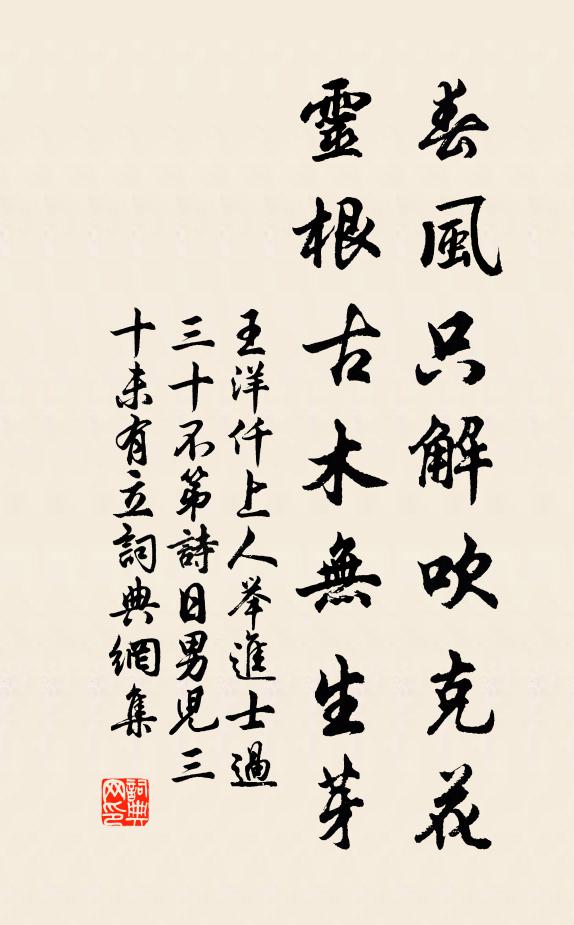 春風只解吹克花
靈根古木無生芽
王洋仟上人举進士過
三十不第詩日男児三
十未有立詞典網集
詞典網印